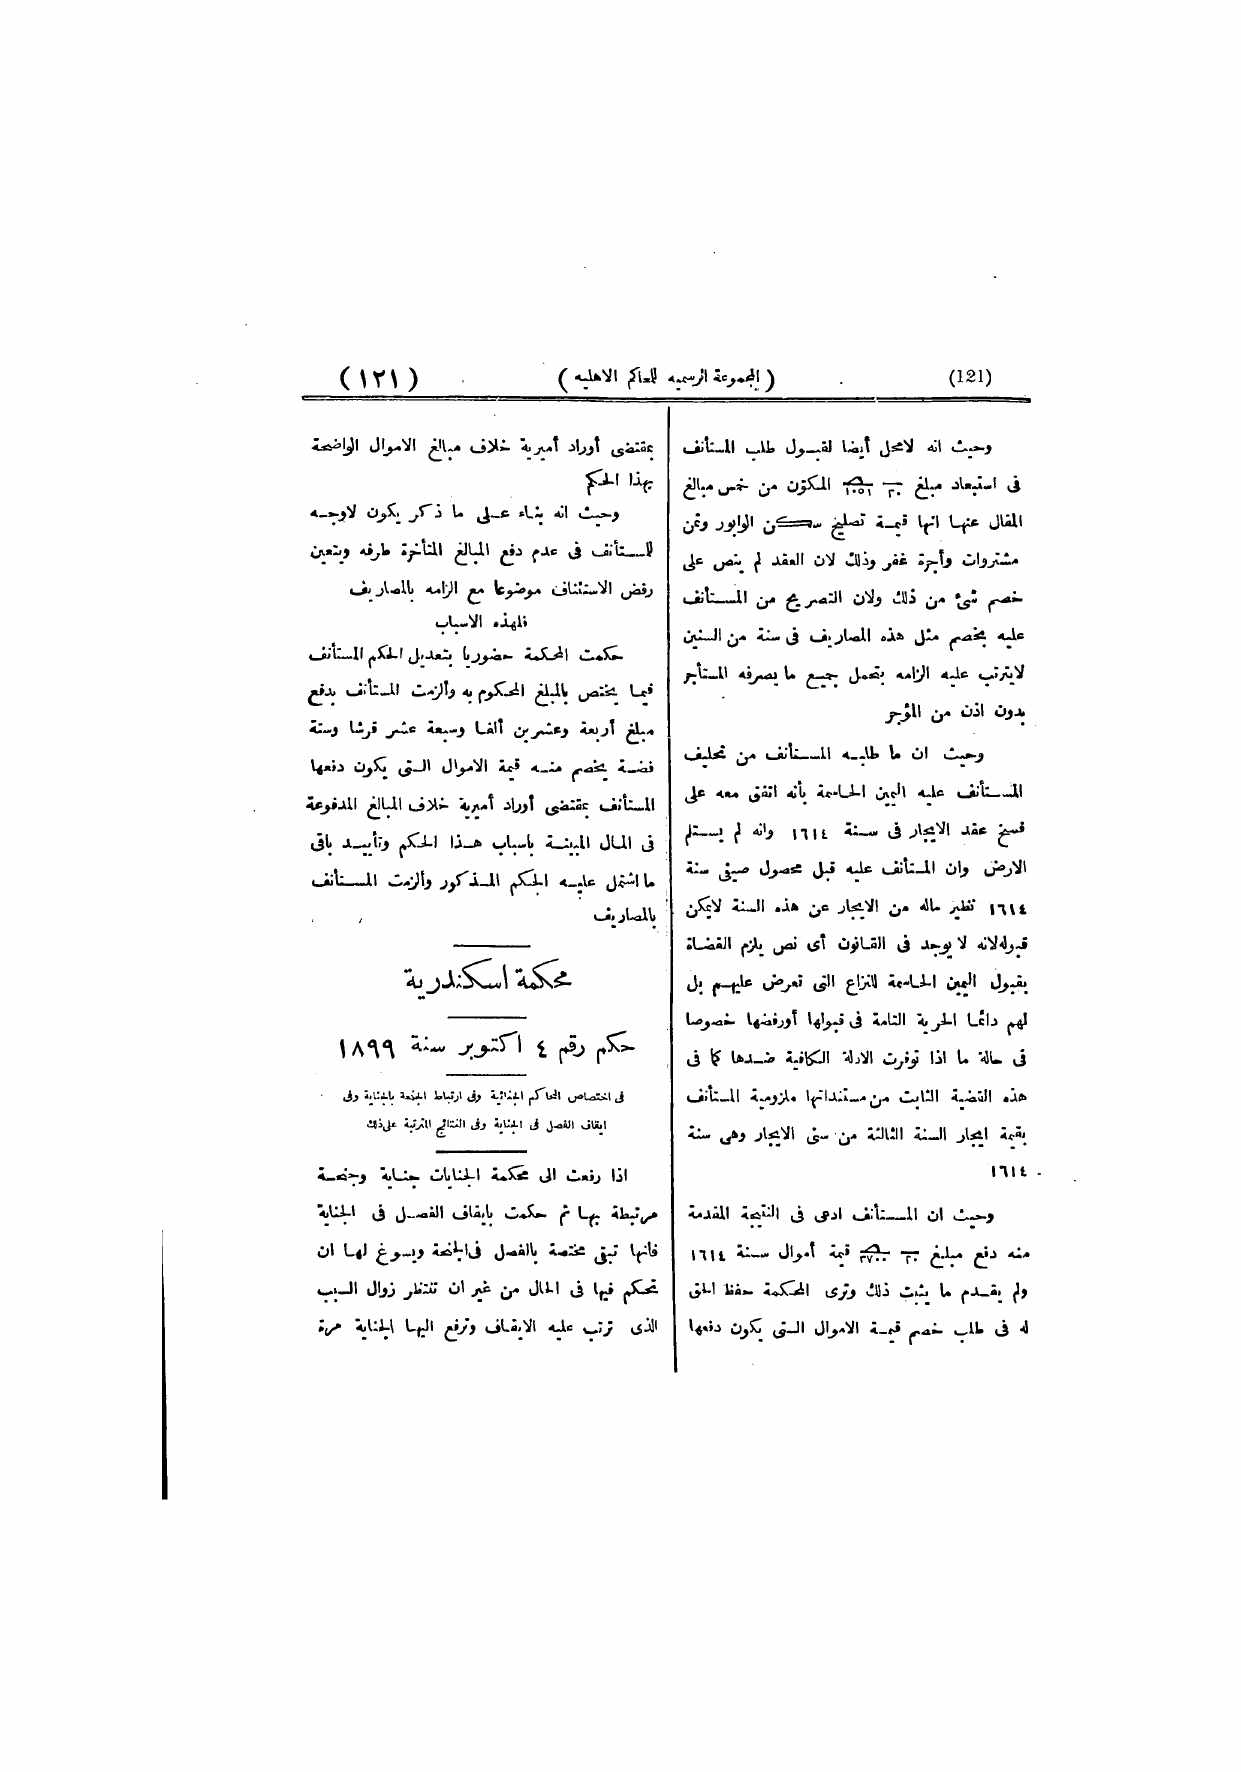 (121)
( المجموعة الرسميه للمحاكم الاهليه )
( ١٢١ )
وحيث انه لامحل أيضا لقبول طلب المستأنف
فى استبعاد مبلغ المكوّن من خمس مبالغ
المقال عنها انها قيمة تصليح سكن الوابور وثمن
مشتروات وأجرة غفر وذلك لان العقد لم ينص على
خصم شئ من ذلك ولان التصريح من المستأنف
عليه بخصم مثل هذه المصاريف فى سنة من السنين
لايترتب عليه الزامه بتحمل جميع ما يصرفه المستأجر
بدون اذن من المؤجر
وحيث ان ما طلبه المستأنف من تحليف
المستأنف عليه اليمين الحاسمة بأنه اتفق معه على
فسخ عقد الايجار فى سنة ١٦١٤ وانه لم يستلم
الارض وان المستأنف عليه قبل محصول صيفى سنة
١٦١٤ نظير ماله من الايجار عن هذه السنة لايمكن
قبوله لانه لا يوجد فى القانون أى نص يلزم القضاة
بقبول اليمين الحاسمة للنزاع التى تعرض عليهم بل
لهم دائما الحرية التامة فى قبولها أورفضها خصوصا
فى حالة ما اذا توفرت الادلة الكافية ضدها كما فى
هذه القضية الثابت من مستنداتها ملزومية المستأنف
بقيمة ايجار السنة الثالثة من سنى الايجار وهى سنة
١٦١٤
وحيث ان المستأنف ادعى فى النتيجة المقدمة
منه دفع مبلغ قيمة أموال سنة ١٦١٤
ولم يقدم ما يثبت ذلك وترى المحكمة حفظ الحق
له فى طلب خصم قيمة الاموال التى يكون دفعها
بمقتضى أوراد أميرية خلاف مبالغ الاموال الواضحة
بهذا الحكم
وحيث انه بناء على ما ذكر يكون لاوجه
للمستأنف فى عدم دفع المبالغ المتأخرة طرفه ويتعين
رفض الاستئناف موضوعا مع الزامه بالمصاريف
فلهذه الاسباب
حكمت المحكمة حضوريا بتعديل الحكم المستأنف
فيما يختص بالمبلغ المحكوم به وألزمت المستأنف بدفع
مبلغ أربعة وعشرين ألفا وسبعة عشر قرشا وستة
فضة يخصم منه قيمة الاموال التى يكون دفعها
المستأنف بمقتضى أوراد أميرية خلاف المبالغ المدفوعة
فى المال المبينة باسباب هذا الحكم وتأييد باقى
ما اشتمل عليه الحكم المذكور وألزمت المستأنف
بالمصاريف
محكمة اسكندرية
حكم رقم ٤ اكتوبر سنة ١٨٩٩
فى اختصاص المحاكم الجنائية وفى ارتباط الجنحة بالجناية وفى
ايقاف الفصل فى الجناية وفى النتائج المترتبة على ذلك
اذا رفعت الى محكمة الجنايات جناية وجنحة
مرتبطة بها ثم حكمت بايقاف الفصل فى الجناية
فانها تبقى مختصة بالفصل فى الجنحة ويسوغ لها ان
تحكم فيها فى الحال من غير ان تنتظر زوال السبب
الذى ترتب عليه الايقاف وترفع اليها الجناية مرة